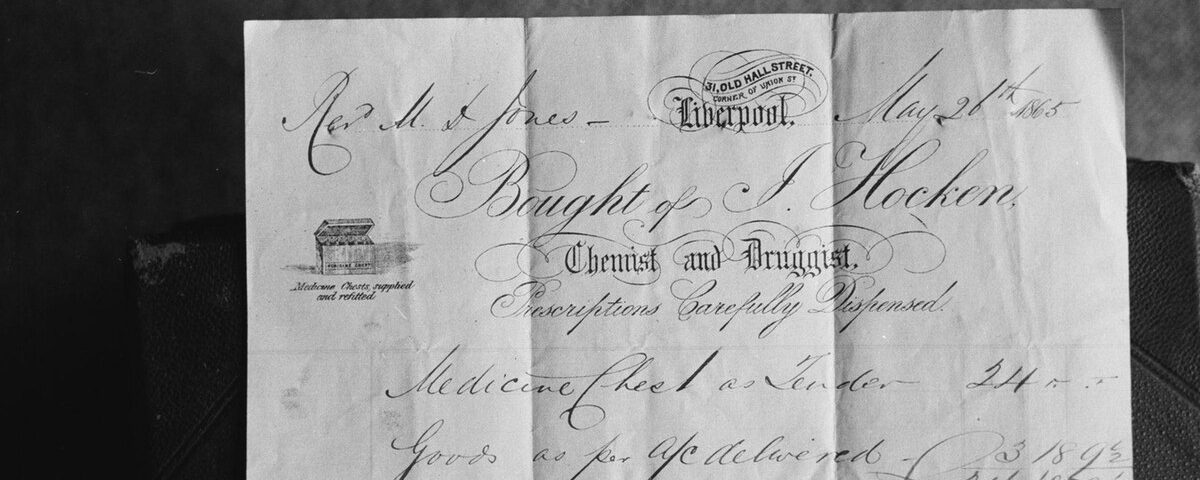 31, OLD HALL STREET,
CORNER OF UNION ST
Revd M. D Jones – Liverpool, May 26th 1865
Bought of J. Hocken,
Chemist and Druggist,
MEDICINE CHEST
Medicine Chests, supplied
and refitted
Prescriptions Carefully Dispensed.
Medicine Chest as Tender 24 " "
Goods as per a/c delivered – 3 18 9½